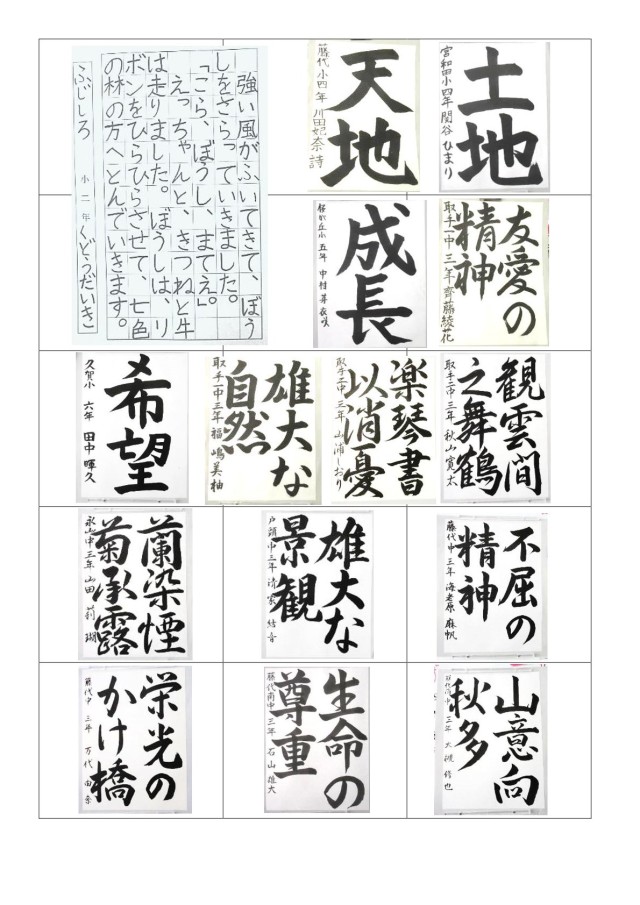 土地
宮和田小四年 関谷 ひまり
天地
藤代小四年 川田妃奈詩
強い風がふいてきて、ぼう
しをさらっていきました。
「こら、ぼうし、まてえ。」
えっちゃんと、きつねと牛
は走りました。ぼうしは、リ
ボンをひらひらさせて、七色
の林の方へとんでいきます。
ふじしろ 小二年 くどうだいき
友愛の
精神
取手一中 三年 齊藤綾花
成長
桜が丘小 五年 中村 芽衣咲
観雲間
之舞鶴
取手二中 三年 秋山 寛太
楽琴書
以消憂
取手二中 三年 山浦しおり
雄大な
自然
取手一中 三年 福嶋美柚
希望
久賀小 六年 田中 暉久
不屈の
精神
藤代中 三年 海老原 麻帆
雄大な
景観
戸頭中 三年 清家 結音
蘭染煙
菊承露
永山中 三年 山田 莉瑚
山意向
秋多
三年 大槻 修也
生命の
尊重
藤代南中 三年 石山 雄大
栄光の
かけ橋
藤代中 三年 万代 由奈